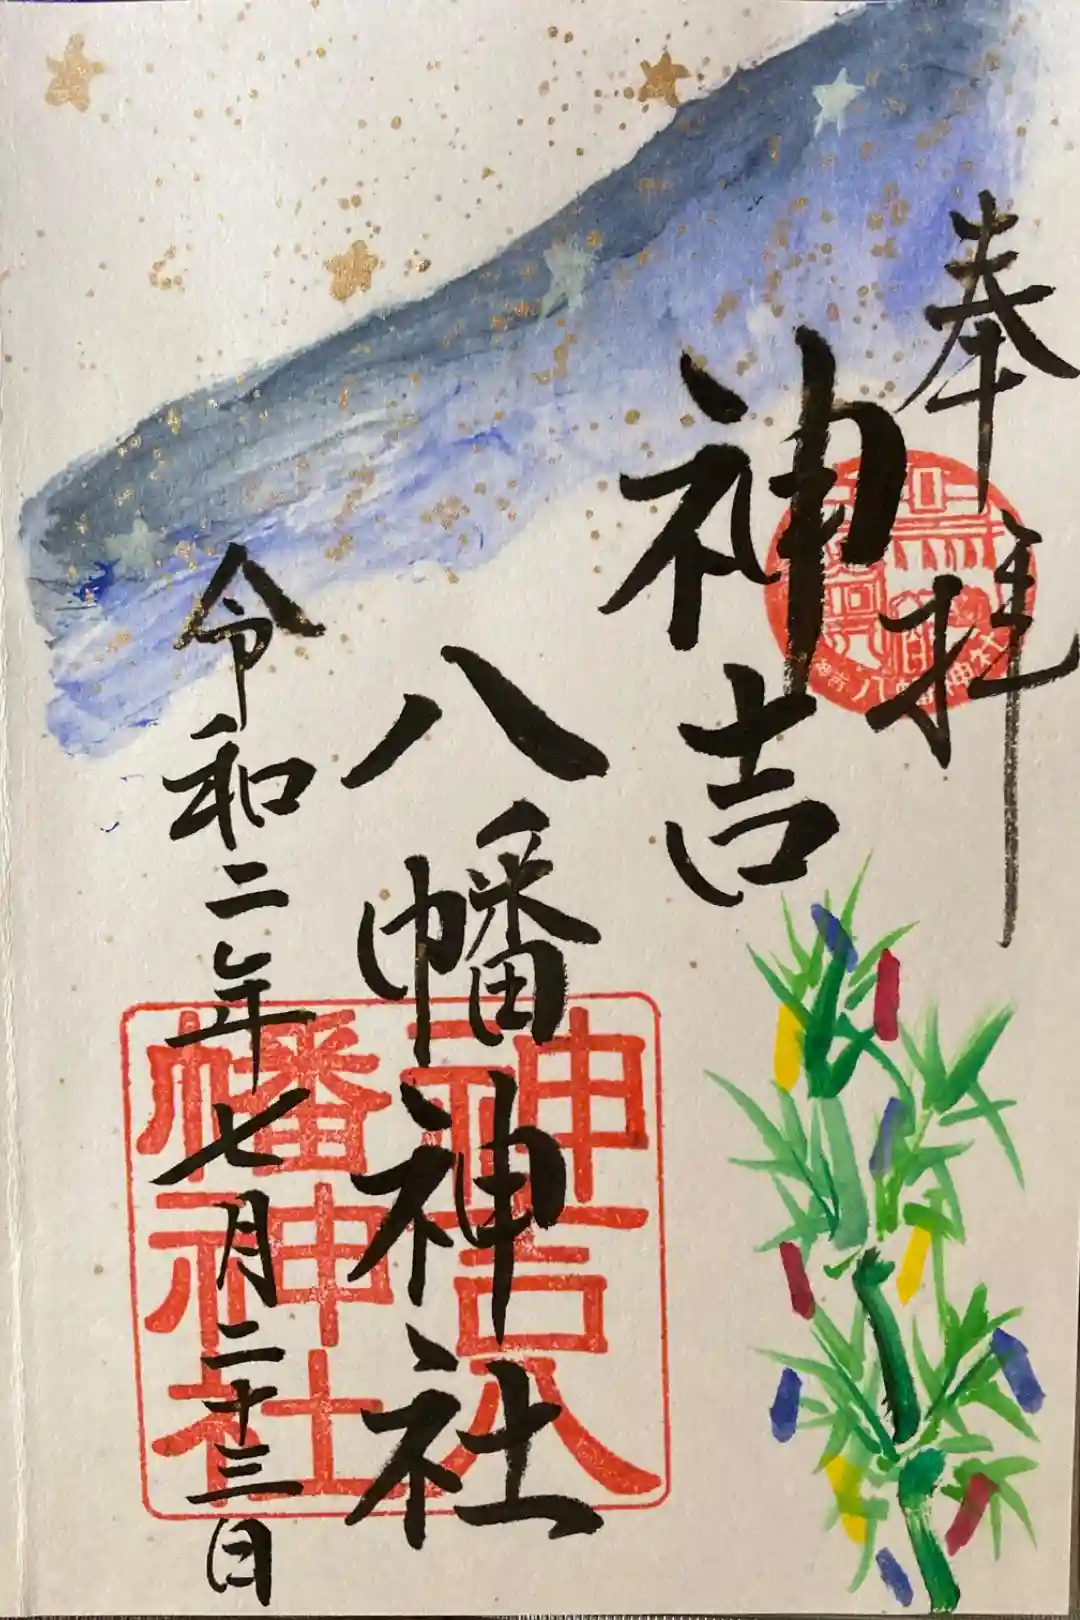 奉拝
神吉
八幡神社
令和二年七月二十三日
神吉八幡神社
神吉八幡神社